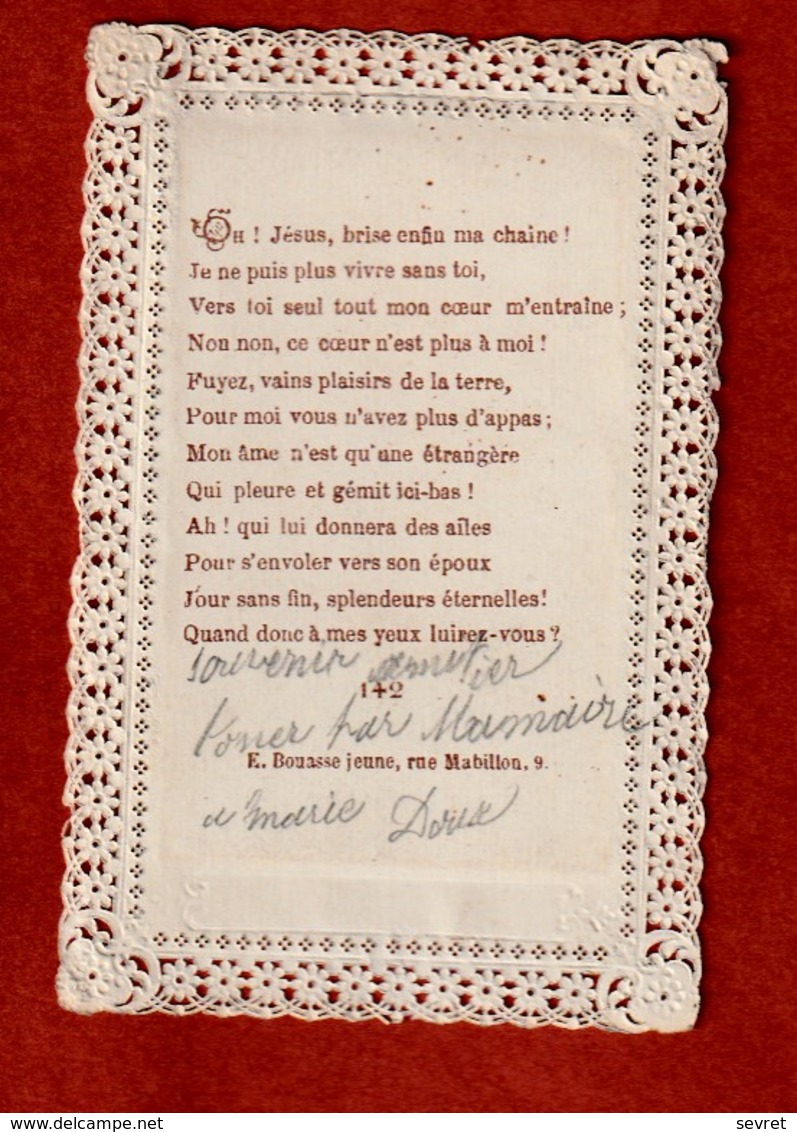 OH ! Jésus, brise enfin ma chaine !
Je ne puis plus vivre sans toi,
Vers toi seul tout mon cœur m'entraîne ;
Non non, ce cœur n'est plus à moi !
Fuyez, vains plaisirs de la terre,
Pour moi vous n'avez plus d'appas ;
Mon âme n'est qu'une étrangère
Qui pleure et gémit ici-bas !
Ah ! qui lui donnera des ailes
Pour s'envoler vers son époux
Jour sans fin, splendeurs éternelles!
Quand donc à mes yeux luirez-vous ?
souvenir
142
par
E. Bouasse jeune, rue Mabillon, 9.
a marie Doux
delcampe.net
sevret